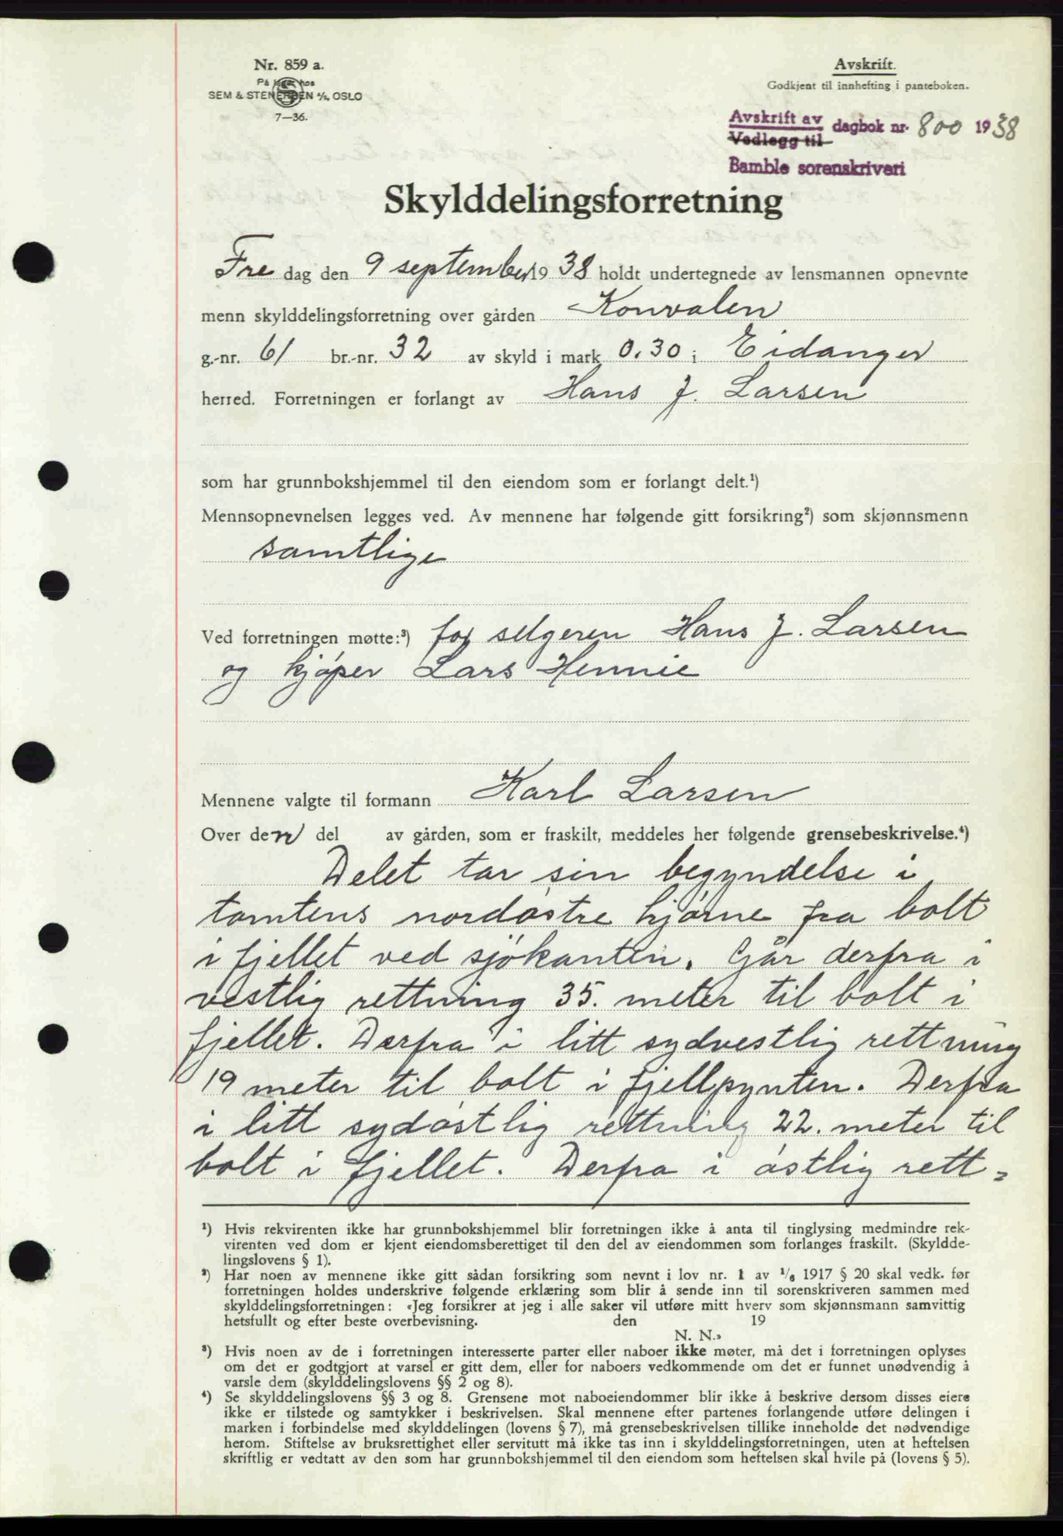 Nr. 859 a.
På lager hos
SEM & STENERSEN A/S, OSLO
7—36.
Avskrift.
Godkjent til innhefting i panteboken.
Avskrift av
Vedlegg til
dagbok nr. 800 1938
Bamble sorenskriveri
Skylddelingsforretning
Fre dag den 9 september 1938 holdt undertegnede av lensmannen opnevnte
menn skylddelingsforretning over gården Konvalen
g.-nr. 61 br.-nr. 32 av skyld i mark 0.30 i Eidanger
herred. Forretningen er forlangt av Hans J. Larsen
som har grunnbokshjemmel til den eiendom som er forlangt delt.¹)
Mennsopnevnelsen legges ved. Av mennene har følgende gitt forsikring²) som skjønnsmenn
samtlige
Ved forretningen møtte:³) for selgeren Hans J. Larsen
og kjøper Lars Hennie
Mennene valgte til formann Karl Larsen
Over den del av gården, som er fraskilt, meddeles her følgende grensebeskrivelse.⁴)
Delet tar sin begyndelse i
tomtens nordøstre hjørne fra bolt
i fjellet ved sjökanten. Går derfra i
vestlig rettning 35. meter til bolt i
fjellet. Derfra i litt sydvestlig rettning
19 meter til bolt i fjellpynten. Derfra
i litt sydøstlig rettning 22. meter til
bolt i fjellet. Derfra i østlig rett-
¹) Hvis rekvirenten ikke har grunnbokshjemmel blir forretningen ikke å anta til tinglysing medmindre rek-
virenten ved dom er kjent eiendomsberettiget til den del av eiendommen som forlanges fraskilt. (Skyldde-
lingslovens § 1).
²) Har noen av mennene ikke gitt sådan forsikring som nevnt i lov nr. 1 av 1/6 1917 § 20 skal vedk. før
forretningen holdes underskrive følgende erklæring som blir å sende inn til sorenskriveren sammen med
skylddelingsforretningen: «Jeg forsikrer at jeg i alle saker vil utføre mitt hverv som skjønnsmann samvittig
hetsfullt og efter beste overbevisning. den 19
N. N.»
³) Hvis noen av de i forretningen interesserte parter eller naboer ikke møter, må det i forretningen oplyses
om det er godtgjort at varsel er gitt dem, eller for naboers vedkommende om det er funnet unødvendig å
varsle dem (skylddelingslovens §§ 2 og 8).
⁴) Se skylddelingslovens §§ 3 og 8. Grensene mot naboeiendommer blir ikke å beskrive dersom disses eiere
ikke er tilstede og samtykker i beskrivelsen. Skal mennene efter partenes forlangende utføre delingen i
marken i forbindelse med skylddelingen (lovens § 7), må grensebeskrivelsen tillike inneholde det nødvendige
herom. Stiftelse av bruksrettighet eller servitutt må ikke tas inn i skylddelingsforretningen, uten at heftelsen
skriftlig er vedtatt av den som har grunnbokshjemmel til den eiendom som heftelsen skal hvile på (lovens § 5).